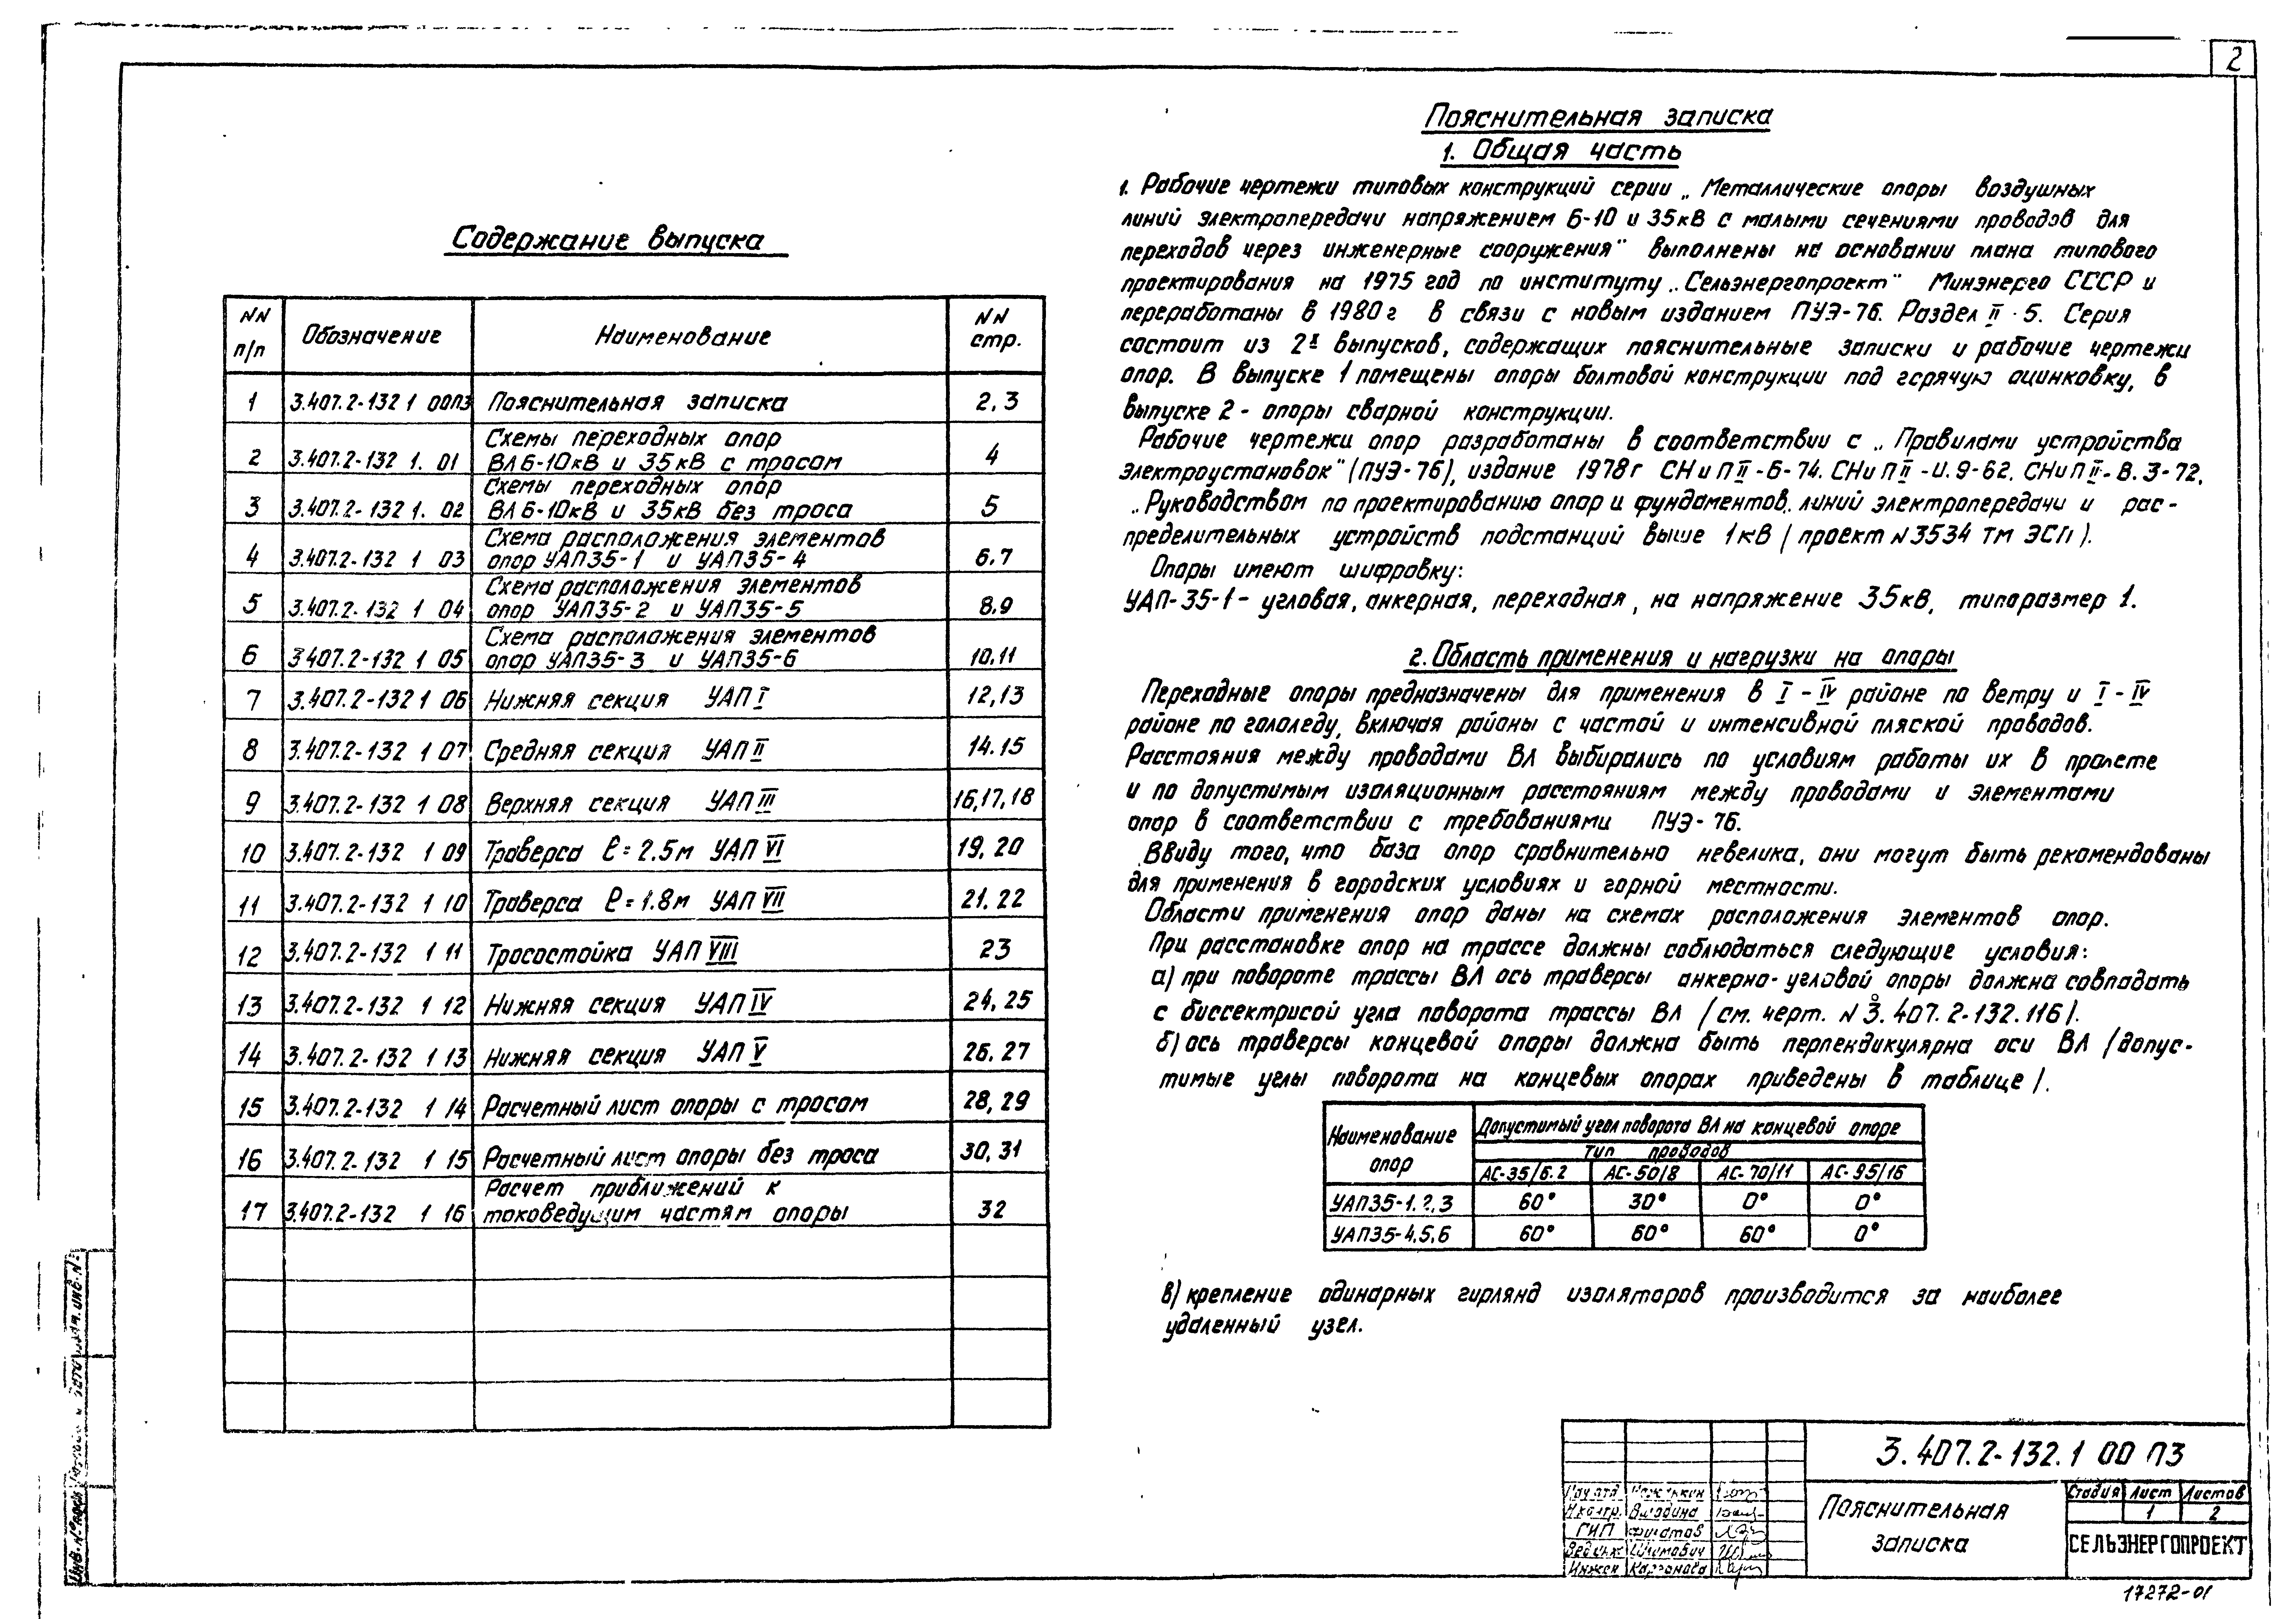 2
Содержание выпуска
NN п/п | Обозначение | Наименование | NN стр.
1 | 3.407.2-132 1 00ПЗ | Пояснительная записка | 2,3
2 | 3.407.2-132 1. 01 | Схемы переходных опор ВЛ 6-10кВ и 35кВ с тросом | 4
3 | 3.407.2-132 1. 02 | Схемы переходных опор ВЛ 6-10кВ и 35кВ без троса | 5
4 | 3.407.2-132 1 03 | Схема расположения элементов опор УАП35-1 и УАП35-4 | 6.7
5 | 3.407.2-132 1 04 | Схема расположения элементов опор УАП35-2 и УАП35-5 | 8,9
6 | 3407.2-132 1 05 | Схема расположения элементов опор УАП35-3 и УАП35-6 | 10.11
7 | 3.407.2-132 1 06 | Нижняя секция УАП I | 12,13
8 | 3.407.2-132 1 07 | Средняя секция УАП II | 14.15
9 | 3.407.2-132 1 08 | Верхняя секция УАП III | 16,17,18
10 | 3.407.2-132 1 09 | Траверса ℓ=2.5м УАП VI | 19,20
11 | 3.407.2-132 1 10 | Траверса ℓ=1.8м УАП VII | 21.22
12 | 3.407.2-132 1 11 | Тросостойка УАП VIII | 23
13 | 3.407.2-132 1 12 | Нижняя секция УАП IV | 24,25
14 | 3.407.2-132 1 13 | Нижняя секция УАП V | 26.27
15 | 3.407.2-132 1 14 | Расчетный лист опоры с тросом | 28,29
16 | 3.407.2-132 1 15 | Расчетный лист опоры без троса | 30,31
17 | 3.407.2-132 1 16 | Расчет приближений к токоведущим частям опоры | 32
Пояснительная записка
1. Общая часть
1. Рабочие чертежи типовых конструкций серии „Металлические опоры воздушных
линий электропередачи напряжением 6-10 и 35кВ с малыми сечениями проводов для
переходов через инженерные сооружения" выполнены на основании плана типового
проектирования на 1975 год по институту „Сельэнергопроект" Минэнерго СССР и
переработаны в 1980г в связи с новым изданием ПУЭ-76. Раздел II·5. Серия
состоит из 2х выпусков, содержащих пояснительные записки и рабочие чертежи
опор. В выпуске 1 помещены опоры болтовой конструкции под горячую оцинковку, в
выпуске 2 - опоры сварной конструкции.
Рабочие чертежи опор разработаны в соответствии с „Правилами устройства
электроустановок" (ПУЭ-76), издание 1978г СНиП II-6-74. СНиП II-И.9-62. СНиП II-В.3-72,
„Руководством по проектированию опор и фундаментов линий электропередачи и рас-
пределительных устройств подстанций выше 1кВ (проект N3534 ТМ ЭСП).
Опоры имеют шифровку:
УАП-35-1 - угловая, анкерная, переходная, на напряжение 35кВ, типоразмер 1.
2. Область применения и нагрузки на опоры
Переходные опоры предназначены для применения в I-IV районе по ветру и I-IV
районе по гололеду, включая районы с частой и интенсивной пляской проводов.
Расстояния между проводами ВЛ выбирались по условиям работы их в пролете
и по допустимым изоляционным расстояниям между проводами и элементами
опор в соответствии с требованиями ПУЭ-76.
Ввиду того, что база опор сравнительно невелика, они могут быть рекомендованы
для применения в городских условиях и горной местности.
Области применения опор даны на схемах расположения элементов опор.
При расстановке опор на трассе должны соблюдаться следующие условия:
а) при повороте трассы ВЛ ось траверсы анкерно-угловой опоры должна совпадать
с биссектрисой угла поворота трассы ВЛ (см. черт. N 3.407.2-132.116).
б) ось траверсы концевой опоры должна быть перпендикулярна оси ВЛ (допус-
тимые углы поворота на концевых опорах приведены в таблице).
Наименование опор | Допустимый угол поворота ВЛ на концевой опоре
Тип проводов
АС-35/6.2 | АС-50/8 | АС-70/11 | АС-95/16
УАП35-1.2,3 | 60° | 30° | 0° | 0°
УАП35-4,5,6 | 60° | 60° | 60° | 0°
в) крепление одинарных гирлянд изоляторов производится за наиболее
удаленный узел.
3.407.2-132.1 00 ПЗ
Пояснительная записка
Стадия | Лист | Листов
1 | 2
СЕЛЬЭНЕРГОПРОЕКТ
Нач.отд.
Н.контр.
ГИП
Вед.инж
Инжен
17272-01